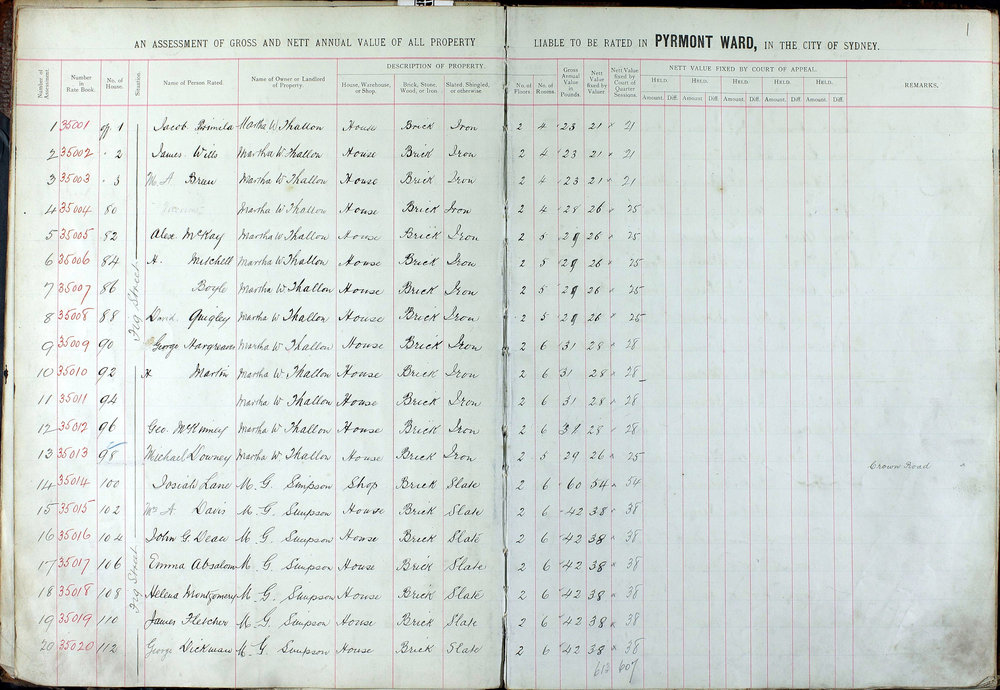 1
AN ASSESSMENT OF GROSS AND NETT ANNUAL VALUE OF ALL PROPERTY LIABLE TO BE RATED IN PYRMONT WARD, IN THE CITY OF SYDNEY.
DESCRIPTION OF PROPERTY. NETT VALUE FIXED BY COURT OF APPEAL.
Number of Assessment. Number in Rate Book. No. of House. Situation. Name of Person Rated. Name of Owner or Landlord of Property. House, Warehouse, or Shop. Brick, Stone, Wood, or Iron Slated, Shingled, or otherwise No. of Floors. No. of Rooms. Gross Annual Value in Pounds. Nett Value fixed by Valuer. Nett Value fixed by Court of Quarter Sessions. HELD. HELD. HELD. HELD. HELD. REMARKS.
Amount. Diff. Amount. Diff. Amount. Diff. Amount. Diff. Amount. Diff.
Fig Street
1 35001 op. 1 Jacob Martha W Thallon House Brick Iron 2 4 23 21 21
2 35002 2 James Wills Martha W Thallon House Brick Iron 2 4 23 21 21
3 35003 3 M. A. Martha W Thallon House Brick Iron 2 4 23 21 21
4 35004 80 Martha W Thallon House Brick Iron 2 4 28 26 25
5 35005 82 Alex McKay Martha W Thallon House Brick Iron 2 5 29 26 25
6 35006 84 H. Mitchell Martha W Thallon House Brick Iron 2 5 29 26 25
7 35007 86 Boyle Martha W Thallon House Brick Iron 2 5 29 26 25
8 35008 88 David Quigley Martha W Thallon House Brick Iron 2 5 29 26 25
9 35009 90 George Hargreaves Martha W Thallon House Brick Iron 2 6 31 28 28
10 35010 92 Martin Martha W Thallon House Brick Iron 2 6 31 28 28
11 35011 94 Martha W Thallon House Brick Iron 2 6 31 28 28
12 35012 96 Geo. McKinney Martha W Thallon House Brick Iron 2 6 31 28 28
13 35013 98 Michael Downey Martha W Thallon House Brick Iron 2 5 29 26 25
Crown Road
14 35014 100 Josiah Lane M. G. Simpson Shop Brick Slate 2 6 60 54 54
Fig Street
15 35015 102 Mrs A Davis M. G. Simpson House Brick Slate 2 6 42 38 38
16 35016 104 John G. Dean M. G. Simpson House Brick Slate 2 6 42 38 38
17 35017 106 Emma Absalom M. G. Simpson House Brick Slate 2 6 42 38 38
18 35018 108 Helena Montgomery M. G. Simpson House Brick Slate 2 6 42 38 38
19 35019 110 James Fletcher M. G. Simpson House Brick Slate 2 6 42 38 38
20 35020 112 George Dickman M. G. Simpson House Brick Slate 2 6 42 38 38
613 607